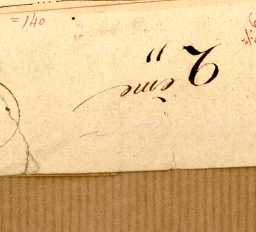 = 140
2 ème
"